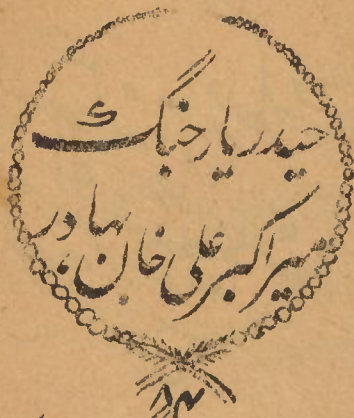 حیدر یار جنگ
میر اکبر علی خان بہادر